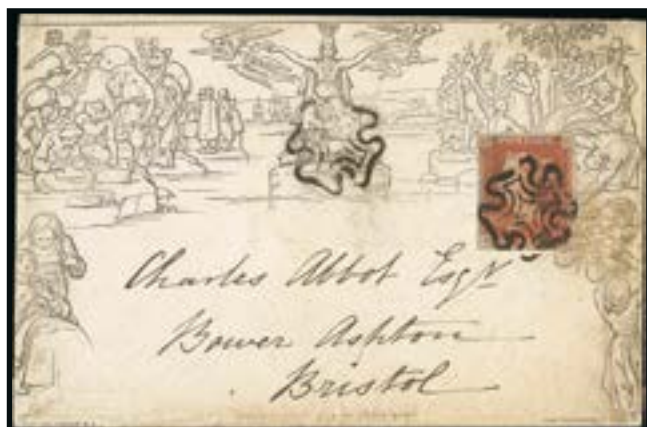 Charles Abbot Esqr
Bower Ashton
Bristol